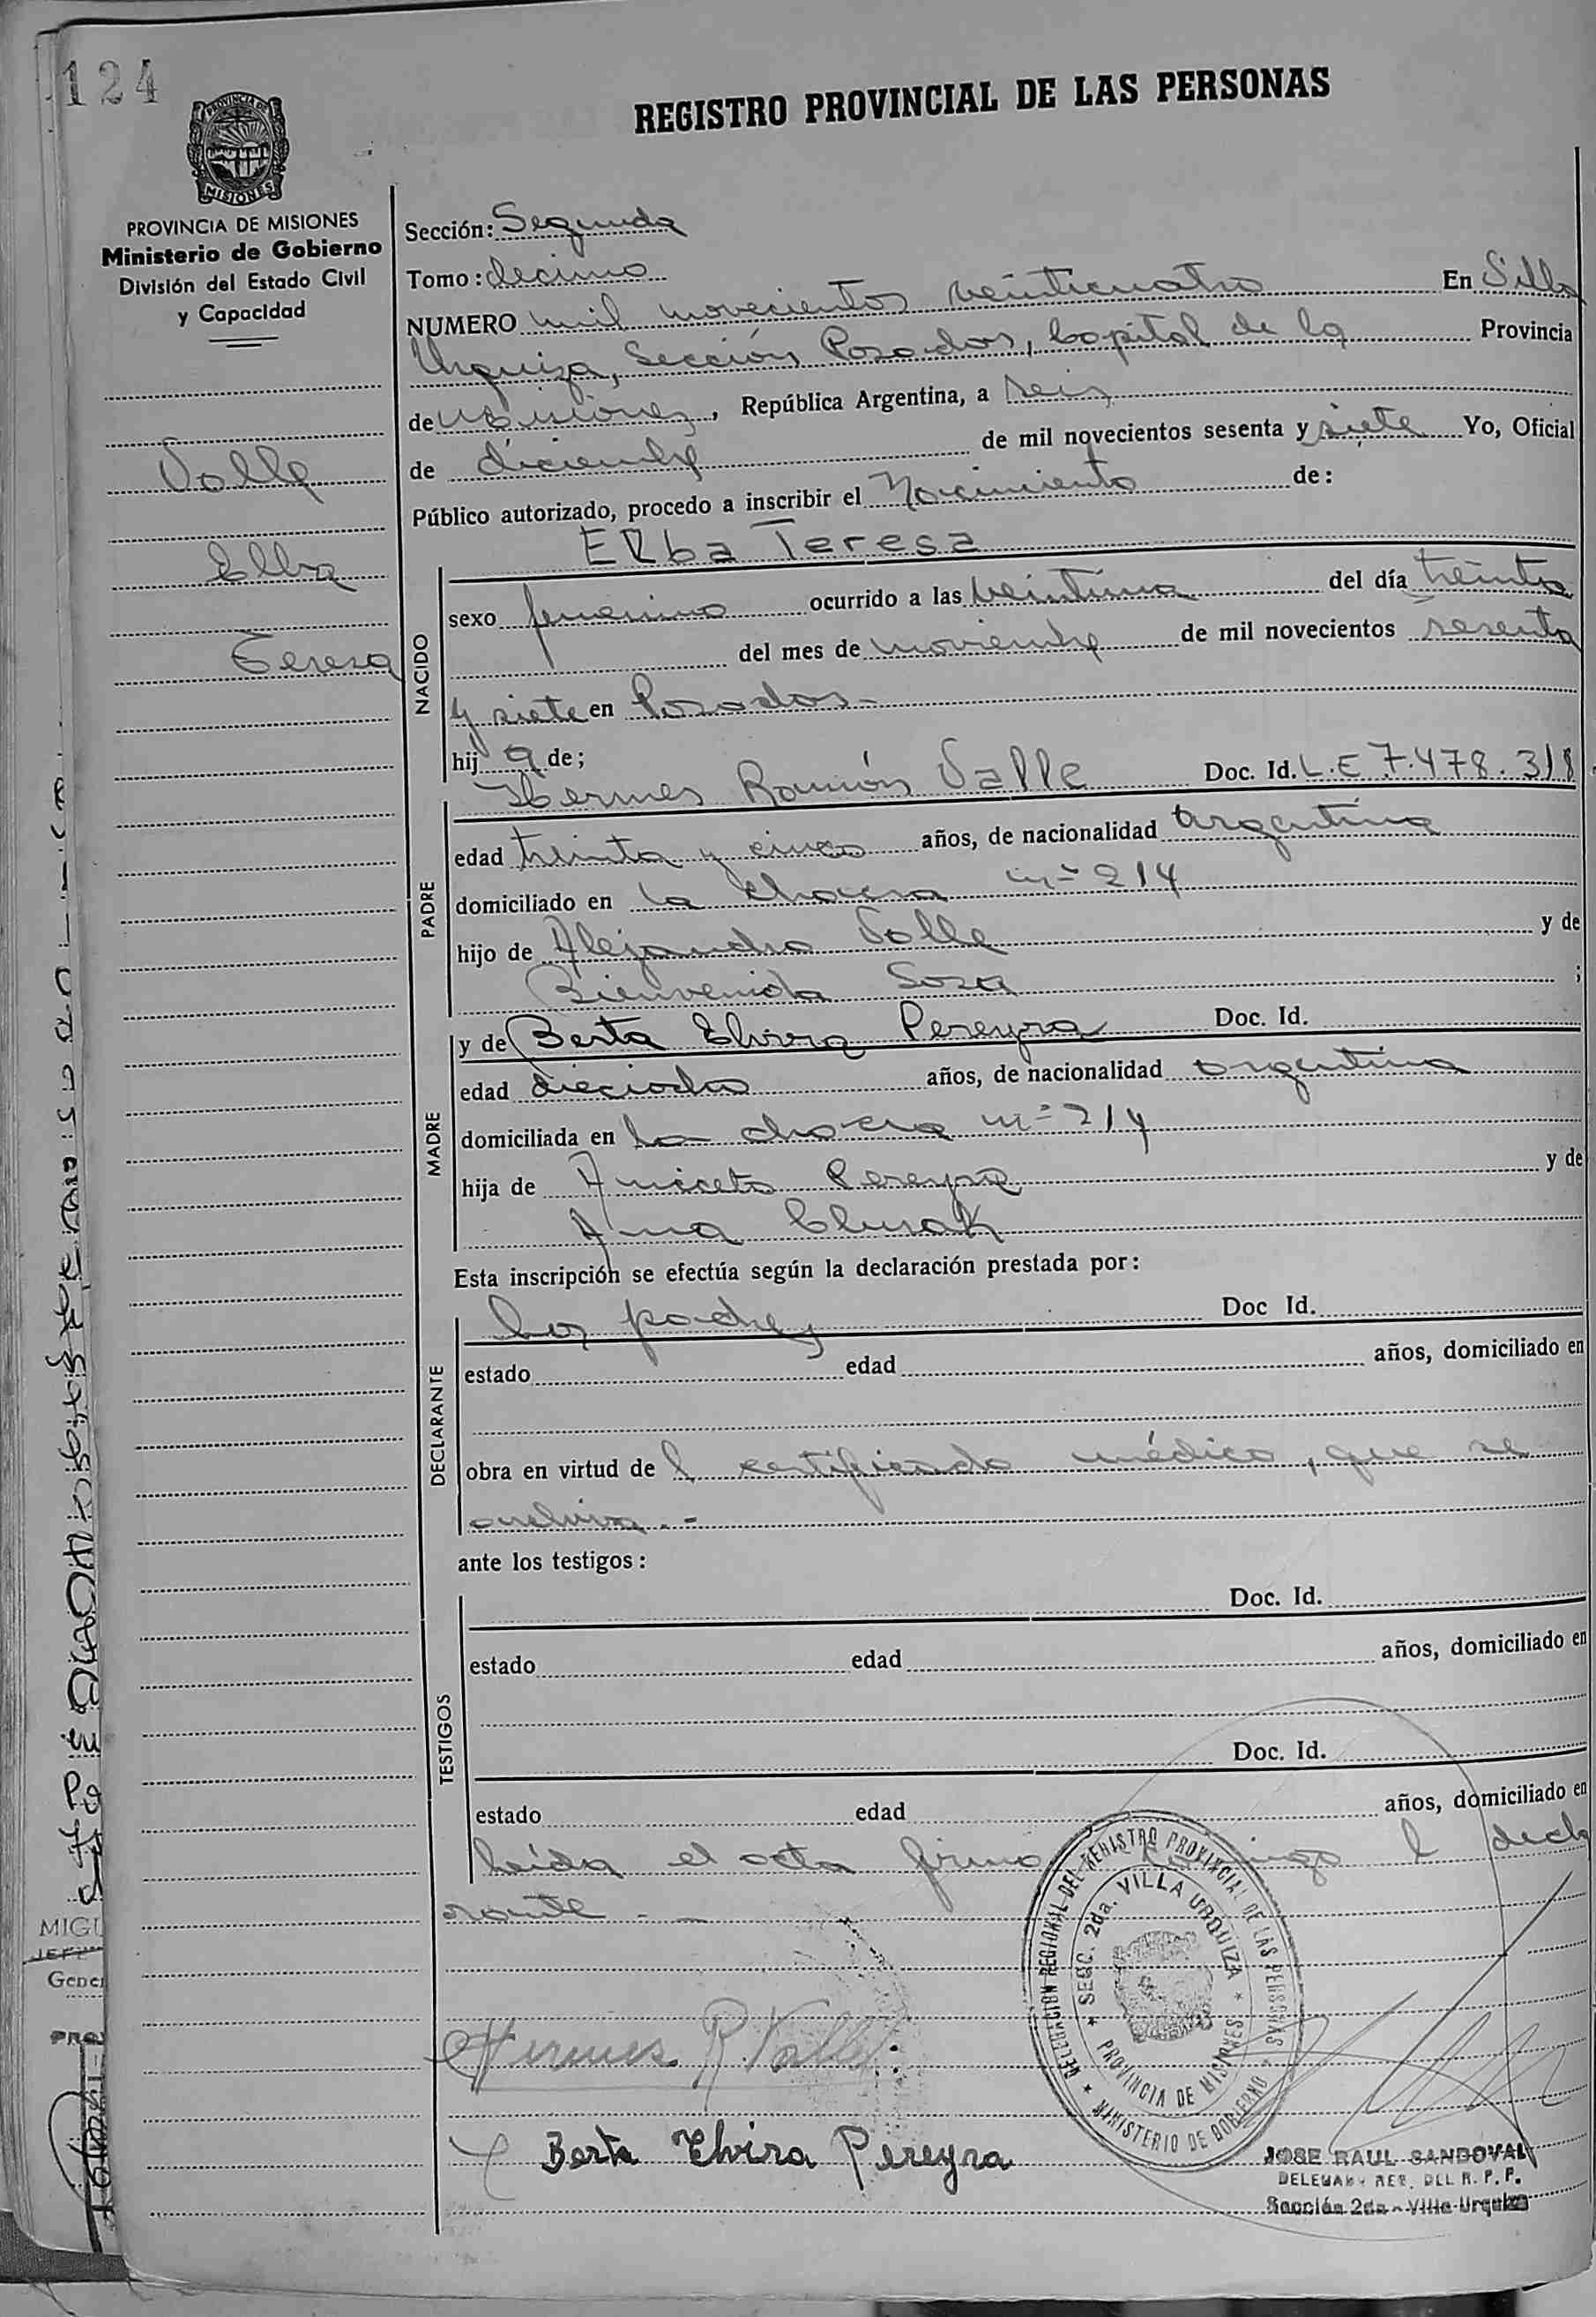 124
REGISTRO PROVINCIAL DE LAS PERSONAS
PROVINCIA DE MISIONES
PROVINCIA DE MISIONES
Ministerio de Gobierno
División del Estado Civil
y Capacidad
Valle
Elba
Teresa
Sección: Segunda
Tomo: decimo
NUMERO mil novecientos veinticuatro En Villa
Urquiza, Sección Posadas, Capital de la Provincia
de Misiones, República Argentina, a seis
de diciembre de mil novecientos sesenta y siete Yo, Oficial
Público autorizado, procedo a inscribir el Nacimiento de:
Elba Teresa
NACIDO
sexo femenino ocurrido a las veintiuna del día treinta
del mes de noviembre de mil novecientos sesenta
y siete en Posadas.-
hij a de;
PADRE
Hermes Ramón Valle Doc. Id. L.E 7.478.318
edad treinta y cinco años, de nacionalidad argentina
domiciliado en la chacra nº 214
hijo de Alejandro Valle y de
Bienvenida Sosa ;
MADRE
y de Berta Elvira Pereyra Doc. Id.
edad dieciocho años, de nacionalidad argentina
domiciliada en la chacra nº 214
hija de Aniceto Pereyra y de
Ana
Esta inscripción se efectúa según la declaración prestada por:
DECLARANTE
los padres Doc Id.
estado edad años, domiciliado en
obra en virtud de l certificado médico, que se
archiva.-
ante los testigos:
TESTIGOS
Doc. Id.
estado edad años, domiciliado en
Doc. Id.
estado edad años, domiciliado en
Leída el acta firma conmigo l decla
rante.-
DELEGACION REGIONAL DEL REGISTRO PROVINCIAL DE LAS PERSONAS
* MINISTERIO DE GOBIERNO *
* SECC. 2da. VILLA URQUIZA *
PROVINCIA DE MISIONES
Hermes R. Valle
Berta Elvira Pereyra
JOSE RAUL SANDOVAL
DELEGADO REG. DEL R. P. P.
Sección 2da - Villa Urquiza
MIGU
Gener